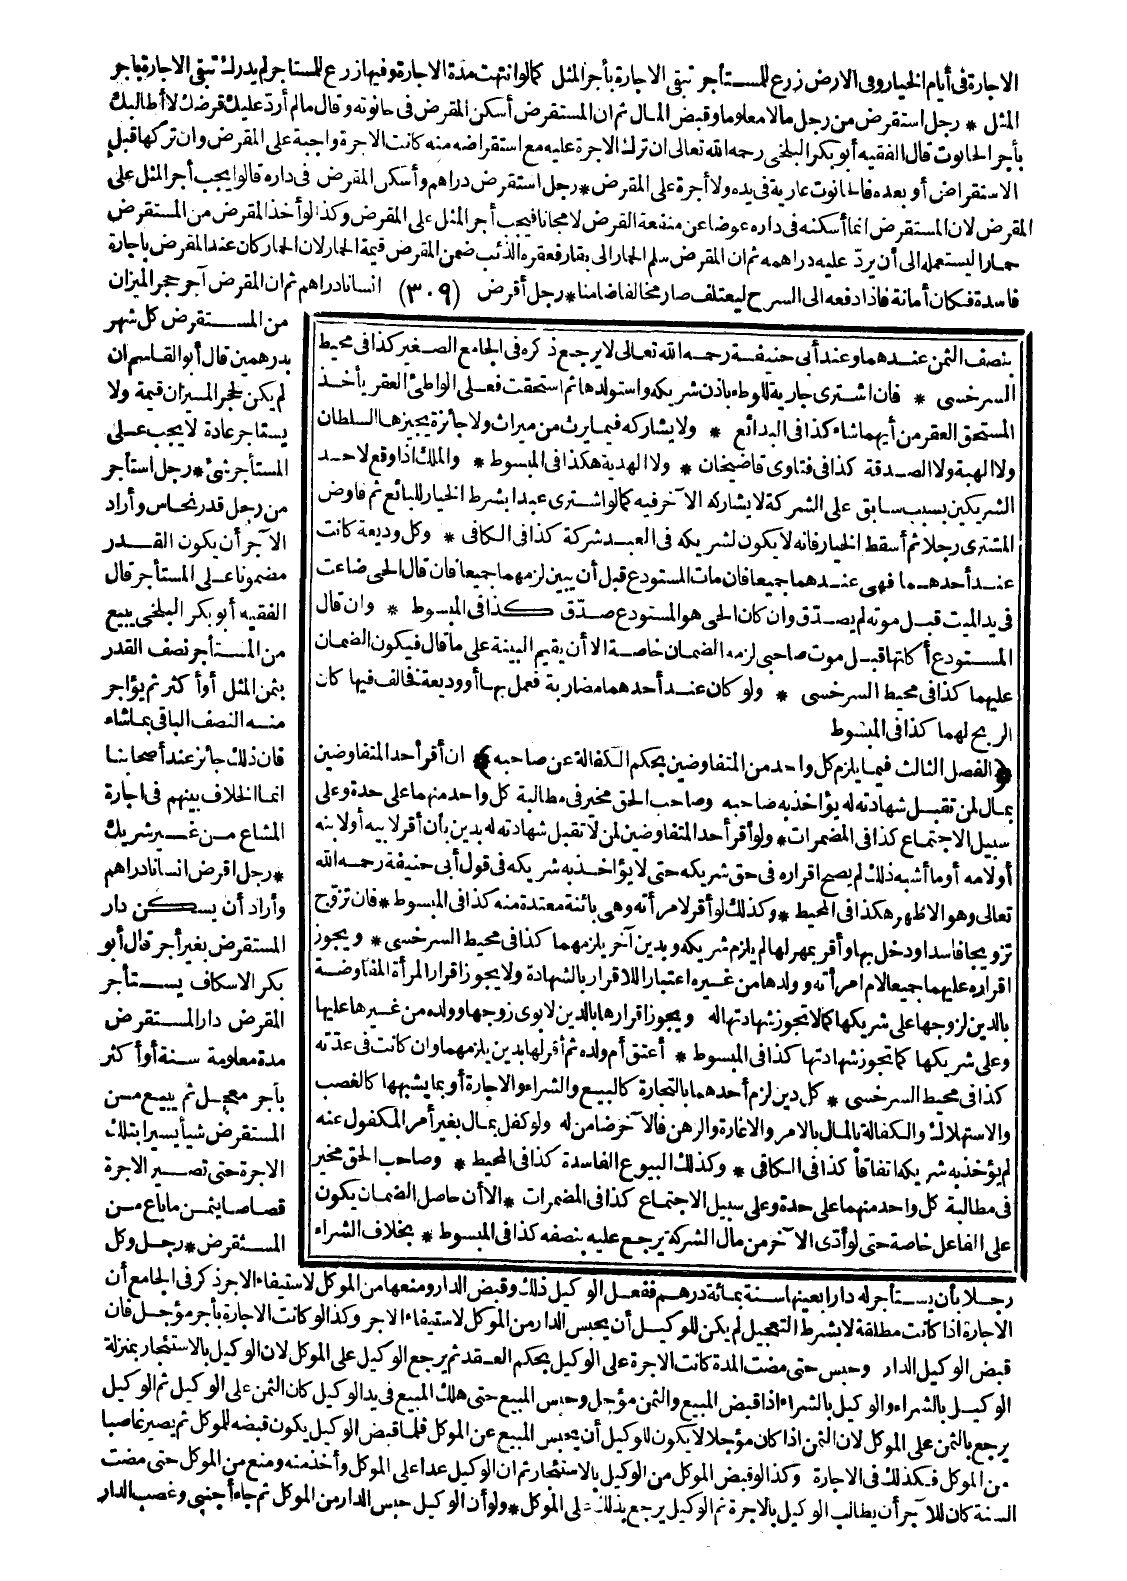 الاجارة في أيام الخيار وفى الارض زرع للمستأجر تبقى الاجارة بأجر المثل كما لو انتهت مدة الاجارة وفيها زرع للمستاجر لم يدرك تبقى الاجارة باجر
المثل * رجل استقرض من رجل مالا معلوما وقبض المال ثم ان المستقرض أسكن المقرض فى حانوته وقال مالم أرد عليك قرضك لا أطالبك
بأجر الحانوت قال الفقيه أبو بكر البلخى رحمه الله تعالى ان ترك الاجرة عليه مع استقراضه منه كانت الاجرة واجبة على المقرض وان تركها قبل
الاستقراض أو بعده فالحانوت عارية فى يده ولا أجرة على المقرض * رجل استقرض دراهم وأسكن المقرض فى داره قالوا يجب أجر المثل على
المقرض لان المستقرض انما أسكنه فى داره عوضا عن منفعة القرض لا مجانا فيجب أجر المثل على المقرض وكذا لو أخذ المقرض من المستقرض
حمارا ليستعمله الى أن يردّ عليه دراهمه ثم ان المقرض سلم الحمار الى بقار فعقره الذئب ضمن المقرض قيمة الحمار لان الحمار كان عند المقرض باجارة
فاسدة فكان أمانة فاذا دفعه الى السرح ليعتلف صار مخالفا ضامنا * رجل أقرض (٣٠٩) انسانا دراهم ثم ان المقرض آجر حجر الميزان
من المستقرض كل شهر
بدرهمين قال أبو القاسم ان
لم يكن لحجر الميزان قيمة ولا
يستاجر عادة لا يجب على
المستأجر شئ * رجل استأجر
من رجل قدر نحاس وأراد
الآجر أن يكون القدر
مضمونا على المستأجر قال
الفقيه أبو بكر البلخى يبيع
من المستأجر نصف القدر
بثمن المثل أو أكثر ثم يؤاجر
منه النصف الباقى بماشاء
فان ذلك جائز عند أصحابنا
انما الخلاف بينهم فى اجارة
المشاع من غير شريك
* رجل اقرض انسانا دراهم
وأراد أن يسكن دار
المستقرض بغير أجر قال أبو
بكر الاسكاف يستأجر
المقرض دار المستقرض
مدة معلومة سنة أو أكثر
بأجر معجل ثم يبيع من
المستقرض شيأ يسيرا بتلك
الاجرة حتى تصير الاجرة
قصاصا بثمن ما باع من
المستقرض * رجل وكل
رجلا بأن يستأجر له دارا بعينها سنة بمائة درهم ففعل الوكيل ذلك وقبض الدار ومنعها من الموكل لاستيفاء الاجر ذكر فى الجامع أن
الاجارة اذا كانت مطلقة لا بشرط التعجيل لم يكن للوكيل أن يحبس الدار من الموكل لاستيفاء الاجر وكذا لو كانت الاجارة بأجر مؤجل فان
قبض الوكيل الدار وحبس حتى مضت المدة كانت الاجرة على الوكيل بحكم العقد ثم يرجع الوكيل على الموكل لان الوكيل بالاستئجار بمنزلة
الوكيل بالشراء والوكيل بالشراء اذا قبض المبيع والثمن مؤجل وحبس المبيع حتى هلك المبيع فى يد الوكيل كان الثمن على الوكيل ثم الوكيل
يرجع بالثمن على الموكل لان الثمن اذا كان مؤجلا لا يكون للوكيل أن يحبس المبيع عن الموكل فلما قبض الوكيل يكون قبضه للموكل ثم يصير غاصبا
من الموكل فكذلك فى الاجارة وكذا لو قبض الموكل من الوكيل بالاستئجار ثم ان الوكيل عدا على الموكل وأخذ منه ومنع من الموكل حتى مضت
السنة كان للآجر أن يطالب الوكيل بالاجرة ثم الوكيل يرجع بذلك على الموكل * ولو أن الوكيل حبس الدار من الموكل ثم جاء أجنبى وغصب الدار
بنصف الثمن عندهما وعند أبى حنيفة رحمه الله تعالى لا يرجع ذكره فى الجامع الصغير كذا فى محيط
السرخسى * فان اشترى جارية للوطء باذن شريكه واستولدها ثم استحقت فعلى الواطئ العقر يأخذ
المستحق العقر من أيهما شاء كذا فى البدائع * ولا يشاركه فيما يرث من ميراث ولا جائزة يجيزها السلطان
ولا الهبة ولا الصدقة كذا فى فتاوى قاضيخان * ولا الهدية هكذا فى المبسوط * والملك اذا وقع لاحد
الشريكين بسبب سابق على الشركة لا يشاركه الآخر فيه كما لو اشترى عبدا بشرط الخيار للبائع ثم فاوض
المشترى رجلا ثم أسقط الخيار فانه لا يكون لشريكه فى العبد شركة كذا فى الكافى * وكل وديعة كانت
عند أحدهما فهى عندهما جميعا فان مات المستودع قبل أن يبين لزمهما جميعا فان قال الحى ضاعت
فى يد الميت قبل موته لم يصدّق وان كان الحى هو المستودع صدّق كذا فى المبسوط * وان قال
المستودع أكلتها قبل موت صاحبى لزمه الضمان خاصة الا أن يقيم البينة على ما قال فيكون الضمان
عليهما كذا فى محيط السرخسى * ولو كان عند أحدهما مضاربة فعمل بها أو وديعة فخالف فيها كان
الربح لهما كذا فى المبسوط
﴿الفصل الثالث فيما يلزم كل واحد من المتفاوضين بحكم الكفالة عن صاحبه﴾ ان أقر احد المتفاوضين
بمال لمن تقبل شهادته له يؤاخذ به صاحبه وصاحب الحق مخير فى مطالبة كل واحد منهما على حدة وعلى
سبيل الاجتماع كذا فى المضمرات * ولو أقر أحد المتفاوضين لمن لا تقبل شهادته له بدين بأن أقر لابيه أو لابنه
أو لامه أو ما أشبه ذلك لم يصح اقراره فى حق شريكه حتى لا يؤاخذ به شريكه فى قول أبى حنيفة رحمه الله
تعالى وهو الاظهر هكذا فى المحيط * وكذلك لو أقر لامرأته وهى بائنة معتدة منه كذا فى المبسوط * فان تزوّج
تزويجا فاسدا ودخل بها وأقر بمهر لها لم يلزم شريكه وبدين آخر يلزمهما كذا فى محيط السرخسى * ويجوز
اقراره عليهما جميعا لام امرأته وولدها من غيره اعتبارا للاقرار بالشهادة ولا يجوز اقرار المرأة المفاوضة
بالدين لزوجها على شريكها كما لا تجوز شهادتها له ويجوز اقرارها بالدين لابوى زوجها وولده من غيرها عليها
وعلى شريكها كما تجوز شهادتها كذا فى المبسوط * أعتق أم ولده ثم أقر لها بدين يلزمهما وان كانت فى عدّته
كذا فى محيط السرخسى * كل دين لزم أحدهما بالتجارة كالبيع والشراء والاجارة أو بما يشبهها كالغصب
والاستهلاك والكفالة بالمال بالامر والاعارة والرهن فالآخر ضامن له ولو كفل بمال بغير أمر المكفول عنه
لم يؤخذ به شريكه اتفاقا كذا فى الكافى * وكذلك البيوع الفاسدة كذا فى المحيط * وصاحب الحق مخير
فى مطالبة كل واحد منهما على حدة وعلى سبيل الاجتماع كذا فى المضمرات * الا أن حاصل الضمان يكون
على الفاعل خاصة حتى لو أدّى الآخر من مال الشركة يرجع عليه بنصفه كذا فى المبسوط * بخلاف الشراء